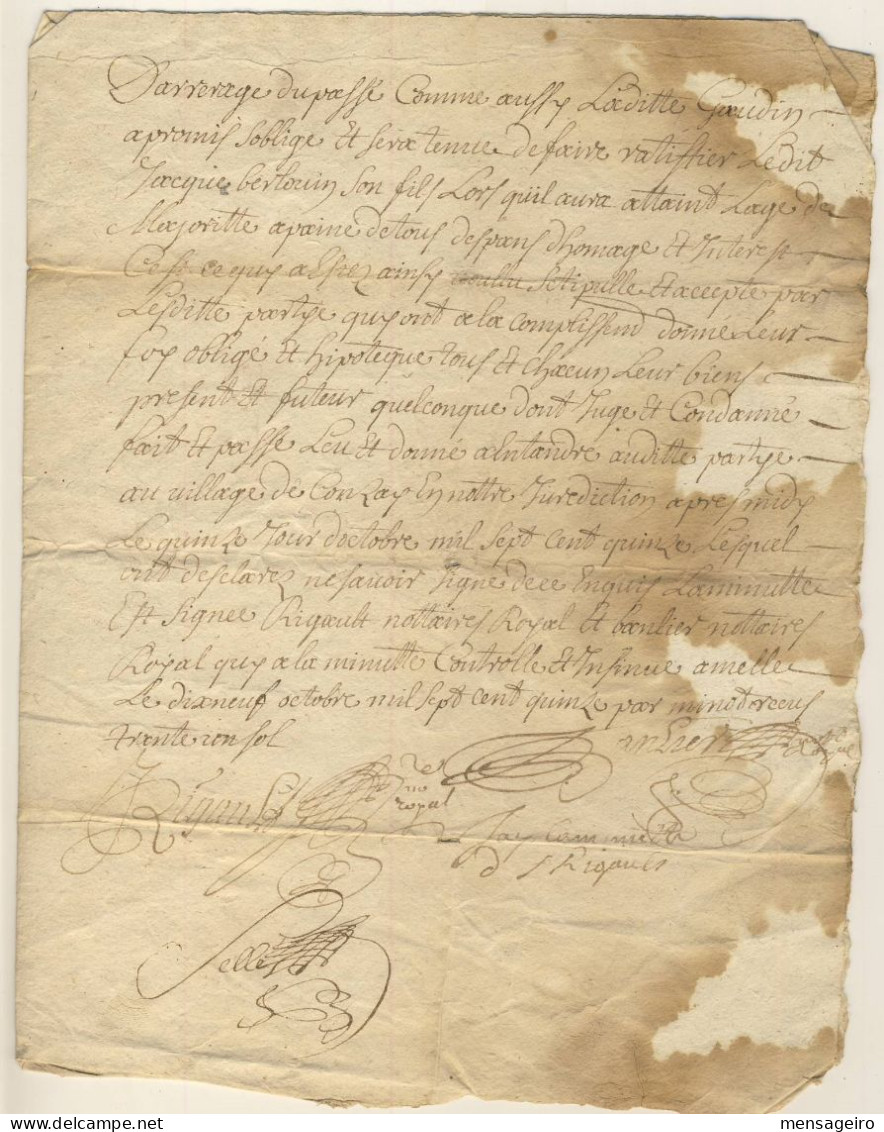 Darrerage du passé Comme aussy Laditte Gaudin
a promis soblige Et sera tenue de faire ratiffier Ledit
Jacque berlouin son fils Lors quil aura attaint Lage de
Majoritte a paine de tous despans dhomage Et Interest
Cest ce quy a Estez ainsy voullu Stipulle Et accepte par
Lesditte partye quy ont a la complissem donné Leur
foy obligé Et hipoteque tous Et chacun Leur biens
present Et futeur quelconque dont Juge Et Condanné
fait Et passé Leu Et donné a Entandre auditte partye
au village de Conzay En nottre Jurediction apres midy
Le quinze Jour doctobre mil sept cent quinze Lesquel
ont desclarez ne savoir signe de ce Enquis La minutte
Est signee Rigault nottaires Royal Et banlier nottaires
Royal quy a la minutte Controlle Et Insinue a melle
Le dixneuf octobre mil sept cent quinze par minot receus
trante un sol
Rigault
no
royal
Jay comm
d s Rigault
Pelle
mensageiro